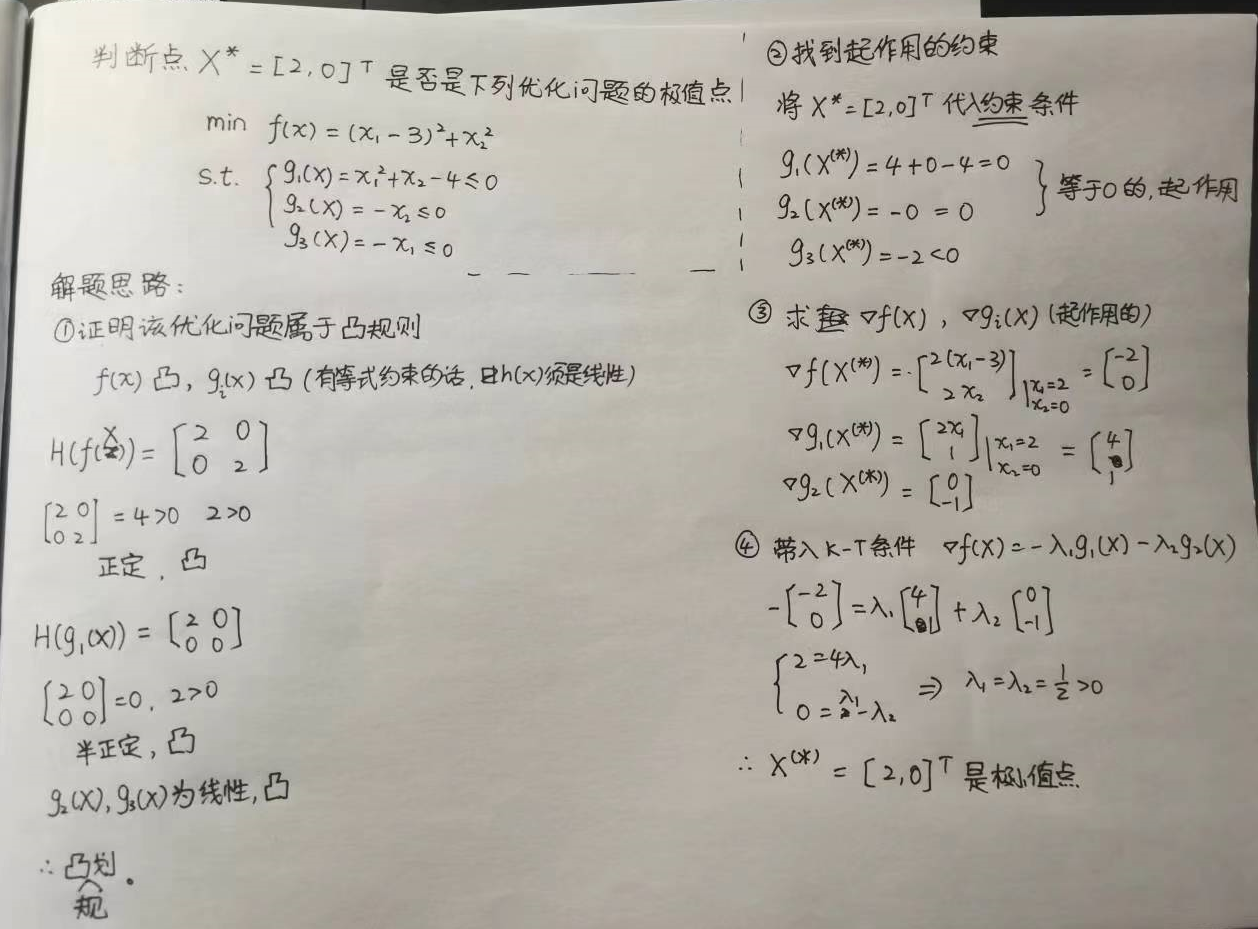 判断点 X* = [2,0]ᵀ 是否是下列优化问题的极值点
min f(x) = (x₁-3)²+x₂²
s.t. { g₁(X) = x₁²+x₂-4≤0
g₂(X) = -x₂≤0
g₃(X) = -x₁≤0
解题思路:
①证明该优化问题属于凸规则
f(x) 凸, gᵢ(x) 凸 (有等式约束的话, 且h(x)须是线性)
H(f(X)) = [2 0; 0 2]
[2 0; 0 2] = 4>0 2>0
正定, 凸
H(g₁(X)) = [2 0; 0 0]
[2 0; 0 0] = 0, 2>0
半正定, 凸
g₂(X), g₃(X)为线性, 凸
∴ 凸规划。
②找到起作用的约束
将 X* = [2,0]ᵀ 代入约束条件
g₁(X⁽*⁾) = 4+0-4=0
g₂(X⁽*⁾) = -0 = 0 } 等于0的,起作用
g₃(X⁽*⁾) = -2<0
③ 求 ∇f(X), ∇gᵢ(X) (起作用的)
∇f(X⁽*⁾) = [2(x₁-3); 2x₂] | x₁=2 x₂=0 = [-2; 0]
∇g₁(X⁽*⁾) = [2x₁; 1] | x₁=2 x₂=0 = [4; 1]
∇g₂(X⁽*⁾) = [0; -1]
④ 带入 K-T条件 ∇f(X) = -λ₁g₁(X)-λ₂g₂(X)
-[-2; 0] = λ₁[4; 1] + λ₂[0; -1]
{ 2=4λ₁
0=λ₁-λ₂ ⇒ λ₁=λ₂=1/2>0
∴ X⁽*⁾ = [2,0]ᵀ 是极小值点